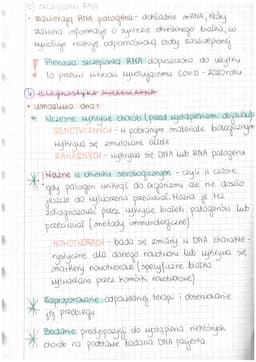 c) szczepionki RNA
• zawierają RNA patogena - dokładnie mRNA, który
zawiera informacje o syntezie określonego białka, co
wywołuje reakcję odpornościową osoby zaszczepionej
! Pierwsza szczepionka RNA dopuszczona do użytku
to przeciw wirusowi wywołującemu COVID - 2020 roku
④ DIAGNOSTYKA MOLEKULARNA
• umożliwia ona:
* Wczesne wykrycie chorób (przed wystąpieniem objawów):
GENETYCZNYCH - w pobranym materiale biologicznym
wykrywa się zmutowane allele
ZAKAŹNYCH - wykrywa się DNA lub RNA patogenu
Ważne w okienku serologicznym - czyli w czasie
gdy patogen wniknął do organizmu ale nie doszło
jeszcze do wytworzenia przeciwciał. Można je też
zdiagnozować przez wykrycie białek patogenów lub
przeciwciał (metody immunologiczne)
NOWOTWORACH - bada się zmiany w DNA charakte-
rystyczne dla danego nowotworu lub wykrywa się
markery nowotworowe (specyficzne białka
wytwarzane przez komórki nowotworowe)
* Zaproponowanie odpowiedniej terapii i obserwowanie
jej przebiegu
* Badanie predyspozycji do wystąpienia niektórych
chorób na podstawie badania DNA pacjenta